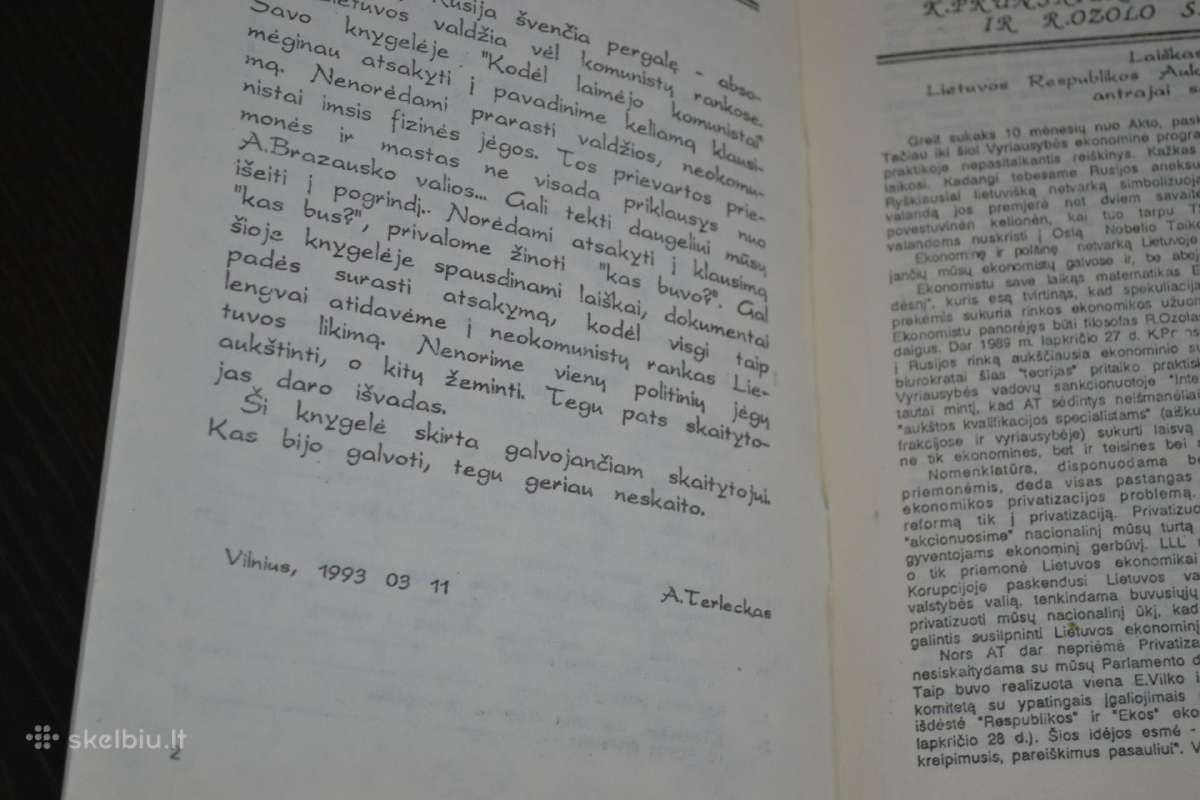 Rusija švenčia pergalę - abso-
Lietuvos valdžia vėl komunistų rankose.
Savo knygelėje "Kodėl laimėjo komunistai"
mėginau atsakyti į pavadinime keliamą klausi-
mą. Nenorėdami prarasti valdžios, neokomu-
nistai imsis fizinės jėgos. Tos prievartos prie-
monės ir mastas ne visada priklausys nuo
A.Brazausko valios... Gali tekti daugeliui mūsų
išeiti į pogrindį.. Norėdami atsakyti į klausimą
"kas bus?", privalome žinoti "kas buvo?". Gal
šioje knygelėje spausdinami laiškai, dokumentai
padės surasti atsakymą, kodėl visgi taip
lengvai atidavėme į neokomunistų rankas Lie-
tuvos likimą. Nenorime vienų politinių jėgų
aukštinti, o kitų žeminti. Tegu pats skaityto-
jas daro išvadas.
Ši knygelė skirta galvojančiam skaitytojui.
Kas bijo galvoti, tegu geriau neskaito.
Vilnius, 1993 03 11
A.Terleckas
2
IR R.OZOLO
Laiškas
Lietuvos Respublikos
antrajai
Greit sukaks 10 mėnesių nuo Akto,
Tačiau iki šiol Vyriausybės ekonominė
praktikoje nepasitaikantis reiškinys. Kažkas
laikosi. Kadangi tebesame Rusijos
Ryškiausiai lietuvišką netvarką
valandą jos premjerė net dviem
povestuvinėn kelionėn, kai tuo tarpu
valandoms nuskristi į Oslą Nobelio
Ekonominę ir politinę netvarką Lietuvoje
jančių mūsų ekonomistų galvose ir, be
Ekonomistu save laikąs matematikas
dėsnį", kuris esą tvirtinąs, kad spekuliacija
prekėmis sukuria rinkos ekonomikos
Ekonomistu panorėjęs būti filosofas
daigus. Dar 1989 m. lapkričio 27 d.
į Rusijos rinką aukščiausia ekonominio
biurokratai šias "teorijas" pritaiko
Vyriausybės vadovų sankcionuotoje
tautai mintį, kad AT sėdintys
"aukštos kvalifikacijos specialistams"
frakcijose ir vyriausybėje) sukurti laisvą
ne tik ekonomines, bet ir teisines bei
Nomenklatūra, disponuodama
priemonėmis, deda visas pastangas
ekonomikos privatizacijos problemą.
reformą tik į privatizaciją.
"akcionuosime" nacionalinį mūsų turtą
gyventojams ekonominį gerbūvį. LLL
o tik priemonė Lietuvos ekonomikai
Korupcijoje paskendusi Lietuvos
valstybės valią, tenkindama buvusiųjų
privatizuoti mūsų nacionalinį ūkį, kad
galintis susilpninti Lietuvos
Nors AT dar nepriėmė
nesiskaitydama su mūsų Parlamento
Taip buvo realizuota viena E.Vilko
komitetą su ypatingais įgaliojimais
išdėstė "Respublikos" ir "Ekos"
lapkričio 28 d.). Šios idėjos esmė -
kreipimusis, pareiškimus pasauliui".
skelbiu.lt